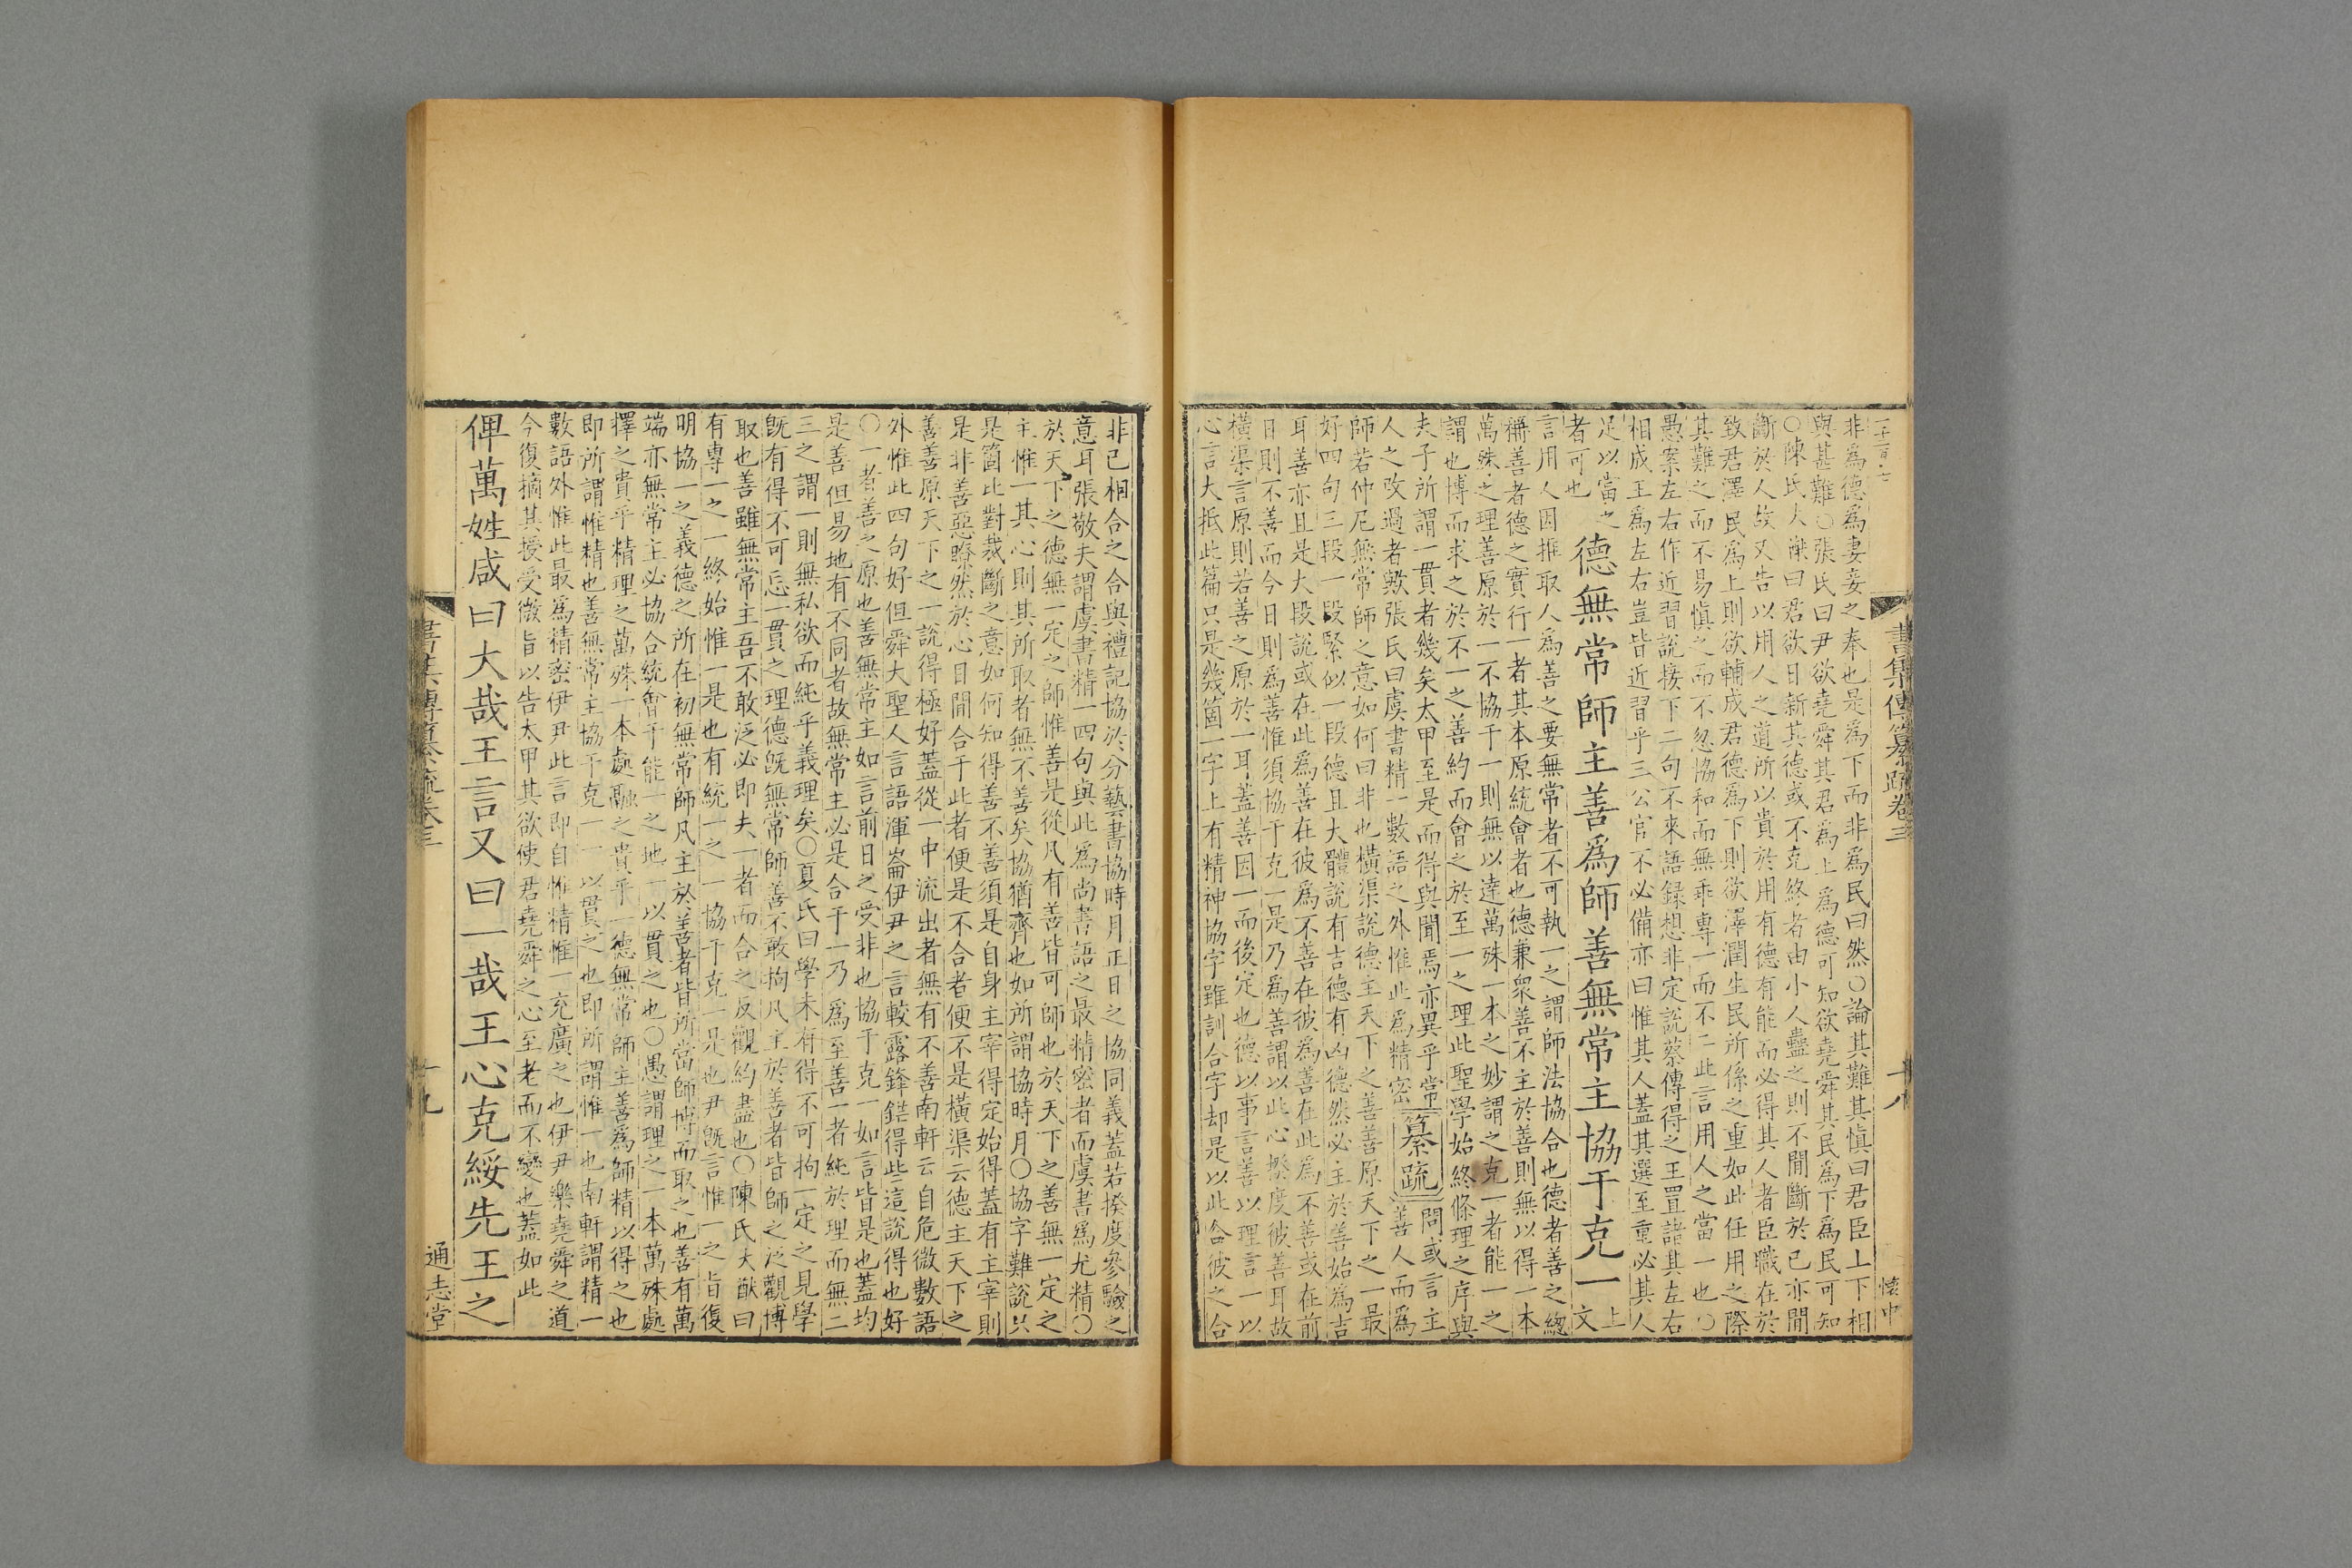 二千二百七
書集傳纂疏卷三
十八
懷中
非爲德爲妻妾之奉也是爲下而非爲民曰然○論其難其愼曰君臣上下相
與甚難○張氏曰尹欲堯舜其君爲上爲德可知欲堯舜其民爲下爲民可知
○陳氏大猷曰君欲日新其德或不克終者由小人蠱之則不間斷於已亦間
斷於人故又告以用人之道所以貴於用有德有能而必得其人者臣職在於
致君澤民爲上則欲輔成君德爲下則欲澤潤生民所係之重如此任用之際
其難之而不易愼之而不忽協和而無乖專一而不二此言用人之當一也○
愚案左右作近習說接下二句不來語録想非定說蔡傳得之王罝諸其左右
相成王爲左右豈皆近習乎三公官不必備亦曰惟其人蓋其選至重必其人
足以當之
者可也
德無常師主善爲師善無常主協于克一
上
文
言用人因推取人爲善之要無常者不可執一之謂師法協合也德者善之緫
稱善者德之實行一者其本原統會者也德兼衆善不主於善則無以得一本
萬殊之理善原於一不協于一則無以達萬殊一本之妙謂之克一者能一之
謂也博而求之於不一之善約而會之於至一之理此聖學始終條理之序與
夫子所謂一貫者幾矣太甲至是而得與聞焉亦異乎常
人之改過者歟張氏曰虞書精一數語之外惟此爲精密
纂疏
問或言主
善人而爲
師若仲尼無常師之意如何曰非也橫渠說德主天下之善善原天下之一最
好四句三段一段緊似一段德且大體說有吉德有凶德然必主於善始爲吉
耳善亦且是大段說或在此爲善在彼爲不善在彼爲善在此爲不善或在前
日則不善而今日則爲善惟須協于克一是乃爲善謂以此心揆度彼善耳故
橫渠言原則若善之原於一耳蓋善因一而後定也德以事言善以理言一以
心言大抵此篇只是幾箇一字上有精神協字雖訓合字却是以此合彼之合
非已相合之合與禮記協於分藝書協時月正日之協同義蓋若揆度參驗之
意耳張敬夫謂虞書精一四句與此爲尚書語之最精密者而虞書爲尤精○
於天下之德無一定之師惟善是從凡有善皆可師也於天下之善無一定之
主惟一其心則其所取者無不善矣協猶齊也如所謂協時月○協字難說只
是箇比對裁斷之意如何知得善不善須是自身主宰得定始得蓋有主宰則
是非善惡瞭然於心目間合于此者便是不合者便不是橫渠云德主天下之
善善原天下之一說得極好蓋從一中流出者無有不善南軒云自危微數語
外惟此四句好但舜大聖人言語渾崙伊尹之言較露鋒鋩得些這說得也好
○一者善之原也善無常主如言前日之受非也協于克一如言皆是也蓋均
是善但易地有不同者故無常主必是合于一乃爲至善一者純於理而無二
三之謂一則無私欲而純乎義理矣○夏氏曰學未有得不可拘一定之見學
旣有得不可忘一貫之理德旣無常師善不敢拘凡主於善者皆師之泛觀博
取也善雖無常主吾不敢泛必即夫一者而合之反觀約盡也○陳氏大猷曰
有專一之一終始惟一是也有統一之一協于克一是也尹旣言惟一之旨復
明協一之義德之所在初無常師凡主於善者皆所當師博而取之也善有萬
端亦無常主必協合統會于能一之地一以貫之也○愚謂理之一本萬殊處
擇之貴乎精理之萬殊一本處融之貴乎一德無常師主善爲師精以得之也
即所謂惟精也善無常主協于克一一以貫之也即所謂惟一也南軒謂精一
數語外惟此最爲精密伊尹此言即自惟精惟一充廣之也伊尹樂堯舜之道
今復摘其授受微旨以告太甲其欲使君堯舜之心至老而不變也蓋如此
俾萬姓咸曰大哉王言又曰一哉王心克綏先王之
書集傳纂疏卷三
十九
通志堂